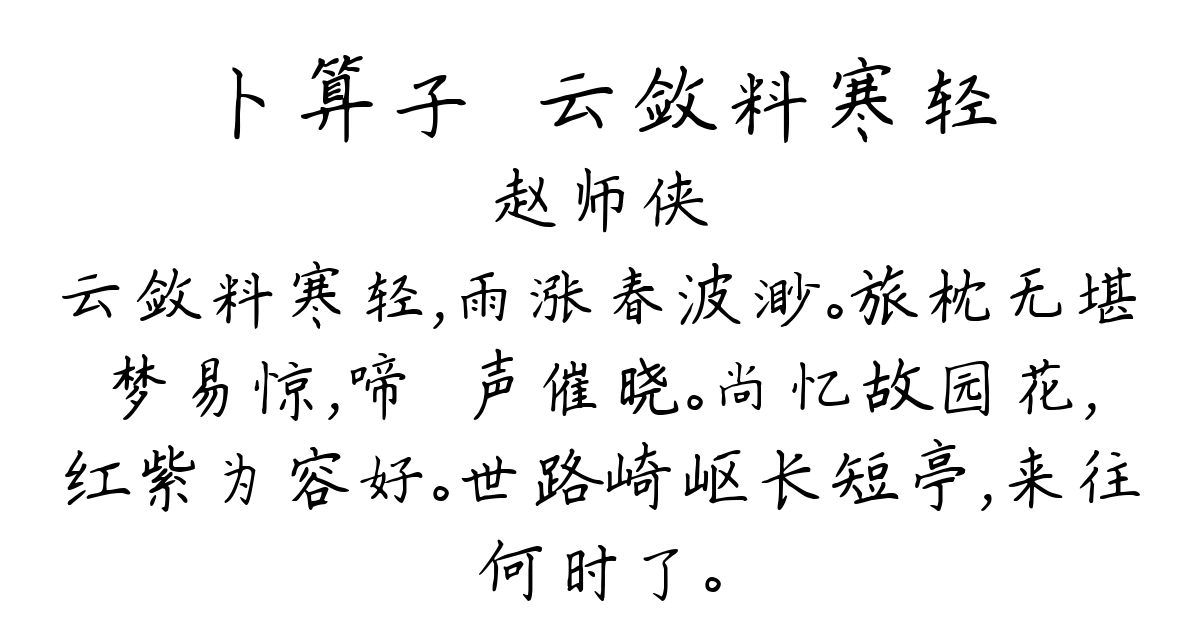 卜算子 云敛料寒轻
赵师侠
云敛料寒轻,雨涨春波渺。旅枕无堪
梦易惊,啼 声催晓。尚忆故园花,
红紫为容好。世路崎岖长短亭,来往
何时了。